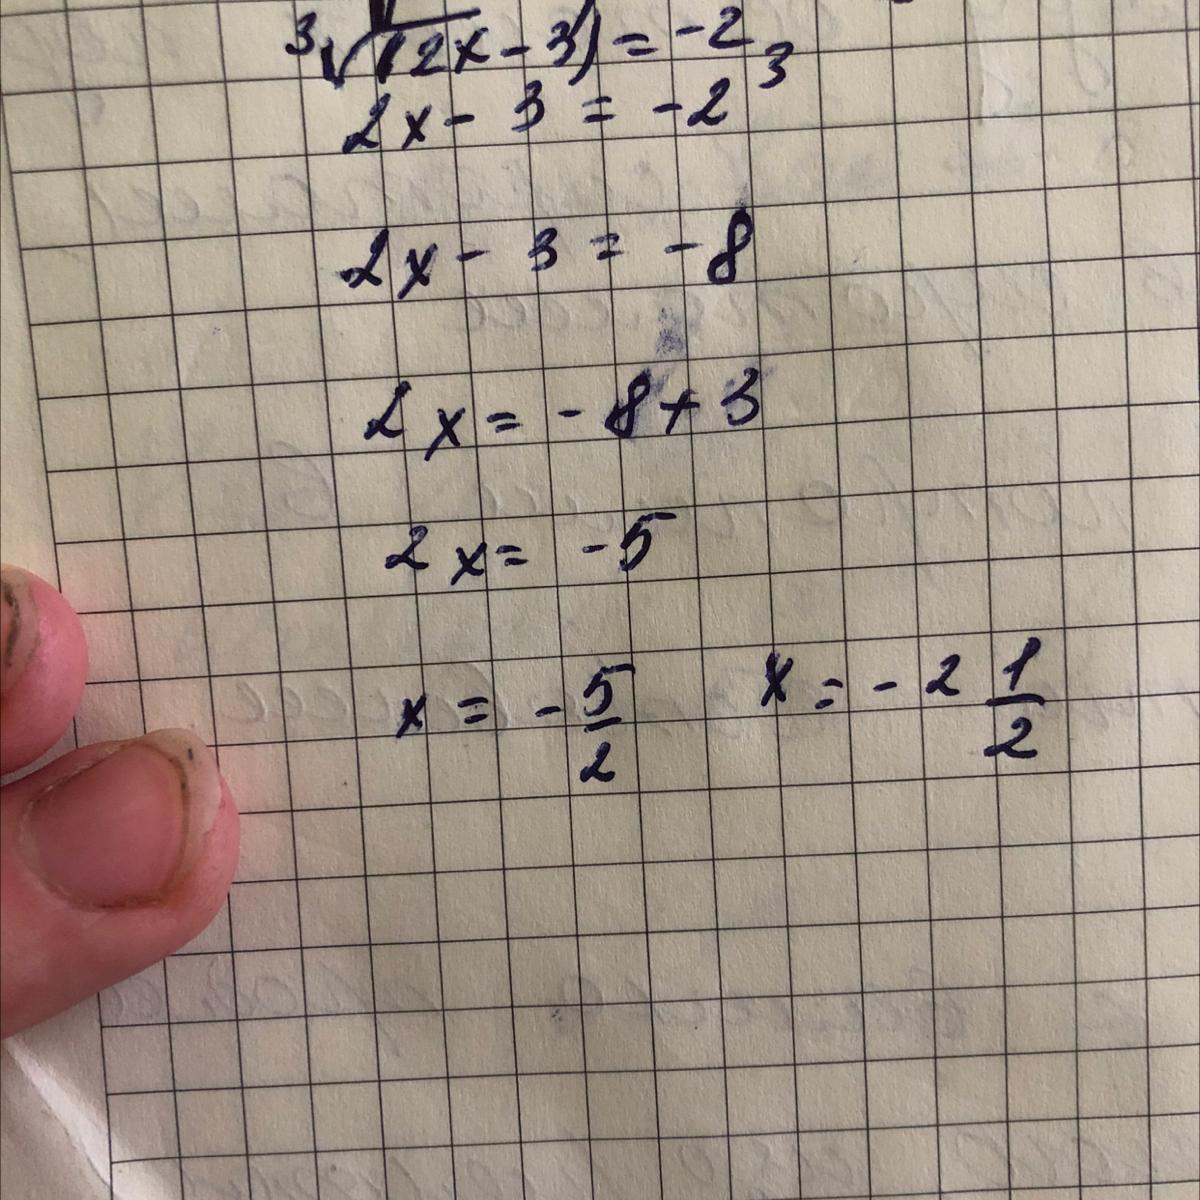 ³√(2x - 3) = -2
2x - 3 = -2³
2x - 3 = -8
2x = -8 + 3
2x = -5
x = -5/2 x = -2 1/2